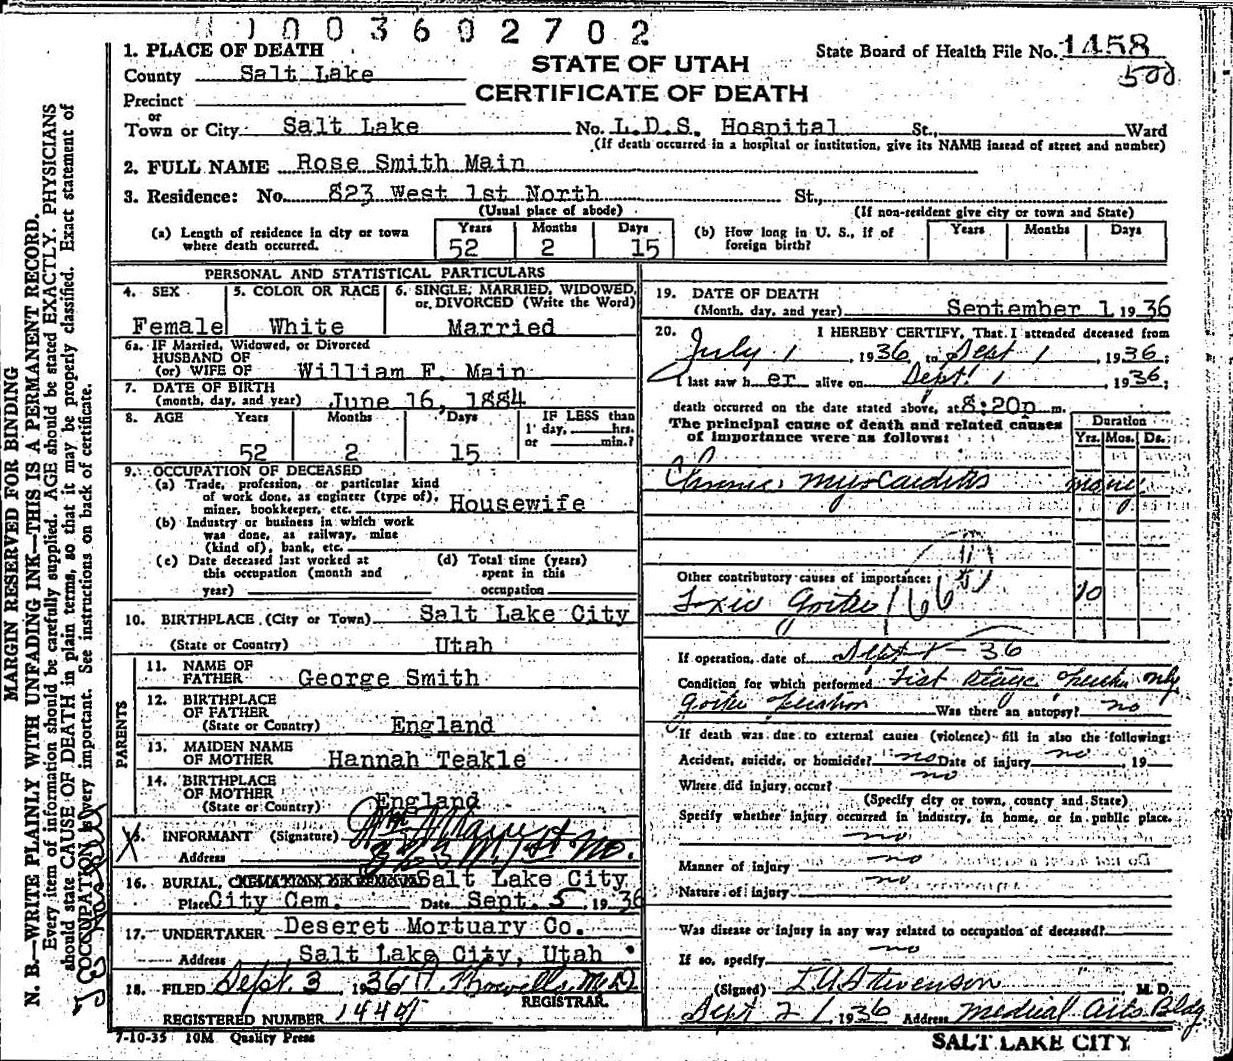 1003602702
1. PLACE OF DEATH
STATE OF UTAH
State Board of Health File No. 1458
County Salt Lake
500
CERTIFICATE OF DEATH
Precinct
or
Town or City Salt Lake No. L.D.S. Hospital St., Ward
(If death occurred in a hospital or institution, give its NAME insead of street and number)
2. FULL NAME Rose Smith Main
3. Residence: No. 823 West 1st North St.,
(Usual place of abode) (If non-resident give city or town and State)
(a) Length of residence in city or town where death occurred. Years 52 Months 2 Days 15
(b) How long in U. S., if of foreign birth? Years Months Days
PERSONAL AND STATISTICAL PARTICULARS
4. SEX Female
5. COLOR OR RACE White
6. SINGLE, MARRIED, WIDOWED, or DIVORCED (Write the Word) Married
6a. IF Married, Widowed, or Divorced
HUSBAND OF
(or) WIFE OF William F. Main
7. DATE OF BIRTH
(month, day, and year) June 16, 1884
8. AGE Years 52 Months 2 Days 15
IF LESS than
1 day, hrs.
or min.?
9. OCCUPATION OF DECEASED
(a) Trade, profession, or particular kind
of work done, as engineer (type of),
miner, bookkeeper, etc. Housewife
(b) Industry or business in which work
was done, as railway, mine
(kind of), bank, etc.
(c) Date deceased last worked at
this occupation (month and
year)
(d) Total time (years)
spent in this
occupation
10. BIRTHPLACE (City or Town) Salt Lake City
(State or Country) Utah
PARENTS
11. NAME OF
FATHER George Smith
12. BIRTHPLACE
OF FATHER
(State or Country) England
13. MAIDEN NAME
OF MOTHER Hannah Teakle
14. BIRTHPLACE
OF MOTHER
(State or Country) England
INFORMANT (Signature)
Address
16. BURIAL, CREMATION OR REMOVAL Salt Lake City
Place City Cem. Date Sept. 5 1936
17. UNDERTAKER Deseret Mortuary Co.
Address Salt Lake City, Utah
18. FILED Sept 3 1936 M.D.
REGISTRAR.
REGISTERED NUMBER
7-10-35 10M Quality Press
19. DATE OF DEATH
(Month, day, and year) September 1 1936
20. I HEREBY CERTIFY, That I attended deceased from
July 1, 1936, to Sept 1, 1936;
I last saw h er alive on Sept 1, 1936;
death occurred on the date stated above, at 8:20p m.
The principal cause of death and related causes
of importance were as follows:
Duration
Yrs. Mos. Ds.
Chronic Myocarditis many
Other contributory causes of importance:
Toxic Goitre 66 10
If operation, date of Sept 1 - 36
Condition for which performed First stage only
Goitre operation Was there an autopsy? no
If death was due to external causes (violence) fill in also the following:
Accident, suicide, or homicide? no Date of injury no, 19
Where did injury occur? no
(Specify city or town, county and State)
Specify whether injury occurred in industry, in home, or in public place.
no
Manner of injury no
Nature of injury no
Was disease or injury in any way related to occupation of deceased?
If so, specify no
(Signed) Stevenson M. D.
Sept 2 1936 Address Medical Arts Bldg
SALT LAKE CITY
MARGIN RESERVED FOR BINDING
N. B.—WRITE PLAINLY WITH UNFADING INK—THIS IS A PERMANENT RECORD.
Every item of information should be carefully supplied. AGE should be stated EXACTLY. PHYSICIANS
should state CAUSE OF DEATH in plain terms, so that it may be properly classified. Exact statement of
OCCUPATION is very important. See instructions on back of certificate.